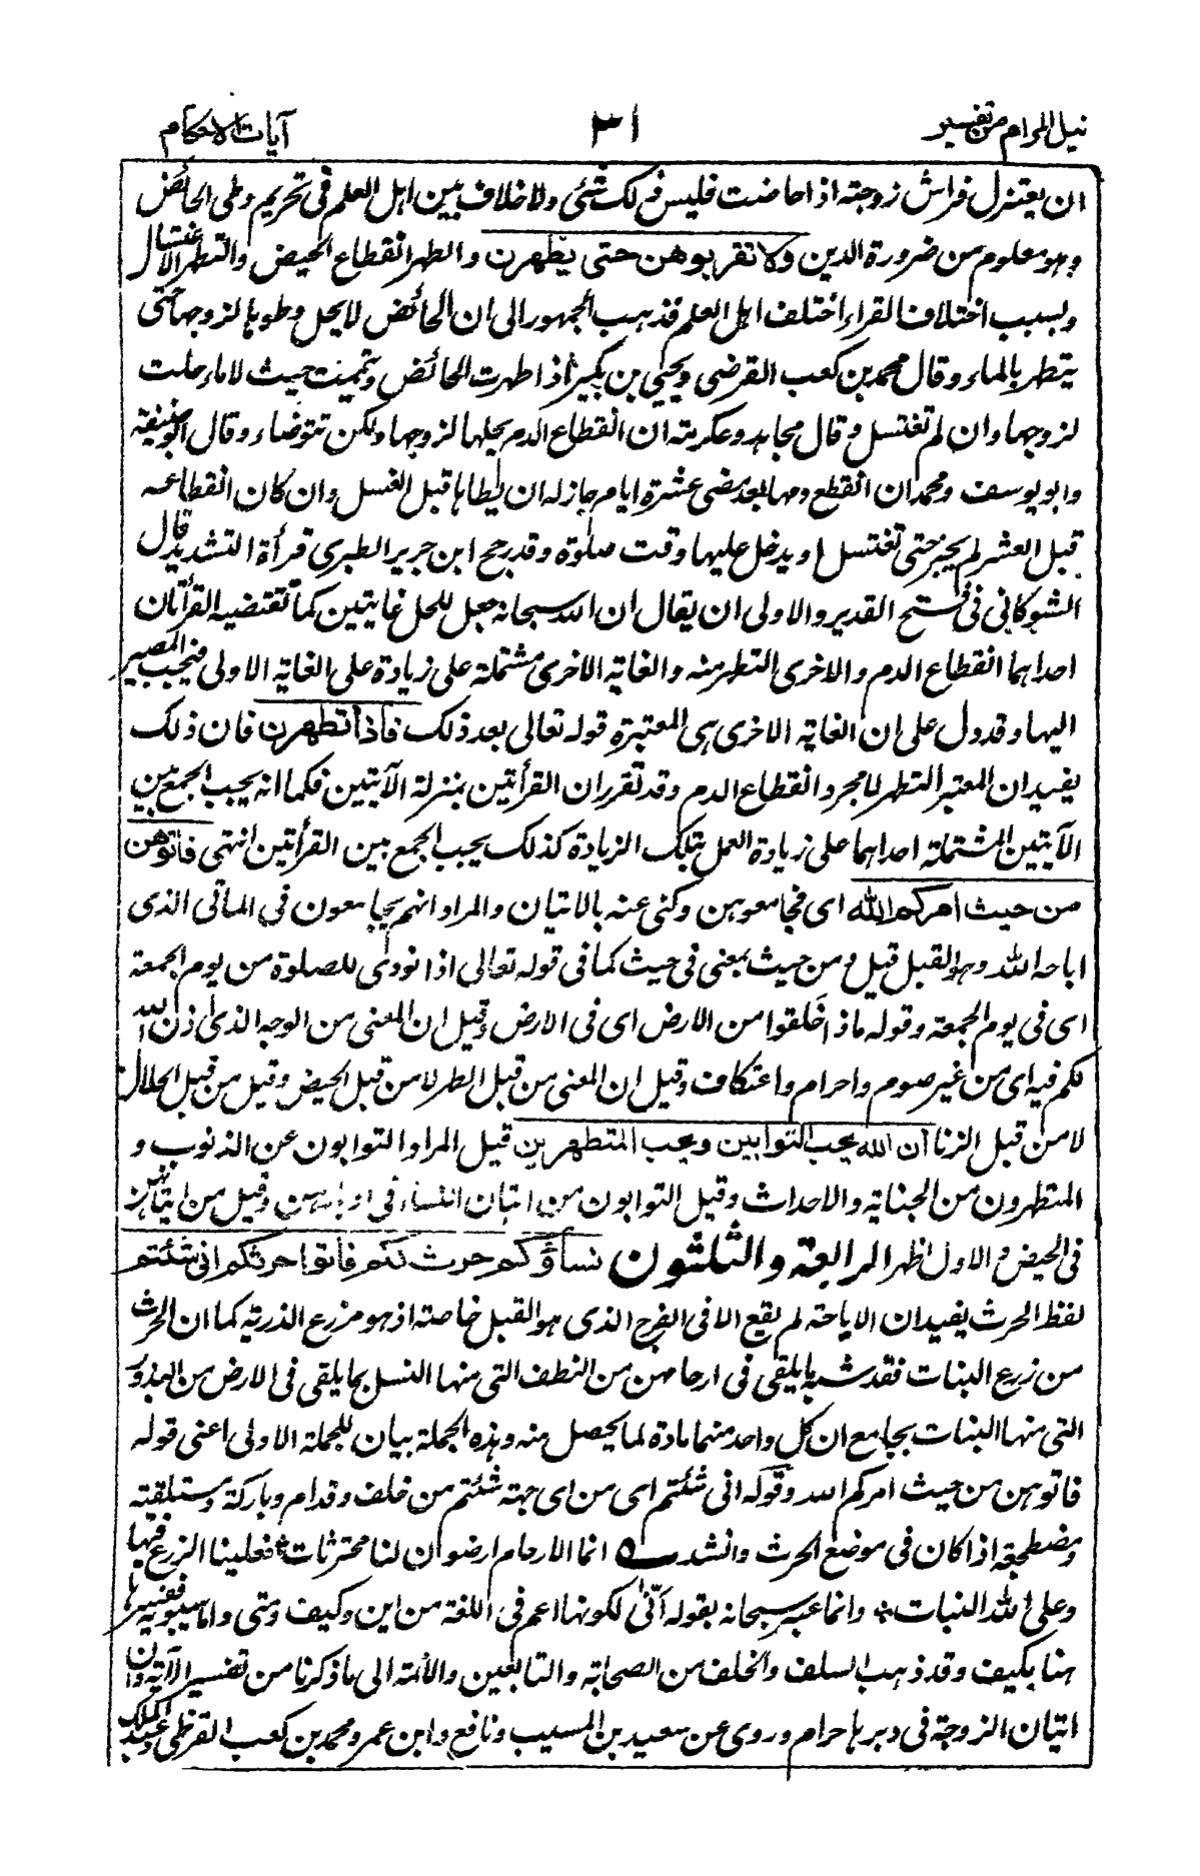 نيل المرام من تفسير
٣١
آيات الاحكام
ان يعتزل فراش زوجته اذا حاضت فليس ذلك بشئ ولا خلاف بين اهل العلم فى تحريم وطى الحائض
وهو معلوم من ضرورة الدين ولا تقربوهن حتى يطهرن والطهر انقطاع الحيض والتطهر الاغتسال
وبسبب اختلاف القراء اختلف اهل العلم فذهب الجمهور الى ان الحائض لا يحل وطوها لزوجها حتى
يتطهر بالماء وقال محمد بن كعب القرضى ويحيى بن بكير اذا طهرت الحائض وتيممت حيث لا ماء حلت
لزوجها وان لم تغتسل وقال مجاهد وعكرمة ان انقطاع الدم يحلها لزوجها ولكن تتوضاء وقال ابو حنيفة
وابو يوسف ومحمد ان انقطع دمها بعد مضى عشرة ايام جاز له ان يطاها قبل الغسل وان كان انقطاعه
قبل العشر لم يجز حتى تغتسل او يدخل عليها وقت صلوة وقد رجح ابن جرير الطبرى قرأة التشديد قال
الشوكانى فى فتح القدير والاولى ان يقال ان الله سبحانه جعل للحل غايتين كما تقتضيه القرأتان
احداهما انقطاع الدم والاخرى التطهر منه والغاية الاخرى مشتملة على زيادة على الغاية الاولى فيجب المصير
اليها وقد دل على ان الغاية الاخرى هى المعتبرة قوله تعالى بعد ذلك فاذا تطهرن فان ذلك
يفيد ان المعتبر التطهر لا مجرد انقطاع الدم وقد تقرر ان القرأتين بمنزلة الآيتين فكما انه يجب الجمع بين
الآيتين المشتملة احداهما على زيادة العمل بتلك الزيادة كذلك يجب الجمع بين القرأتين انتهى فاتوهن
من حيث امركم الله اى فجامعوهن وكنى عنه بالاتيان والمراد انهم يجامعون فى الماتى الذى
اباحه الله وهو القبل قيل ومن حيث بمعنى فى حيث كما فى قوله تعالى اذا نودى للصلوة من يوم الجمعة
اى فى يوم الجمعة وقوله ماذا خلقوا من الارض اى فى الارض وقيل ان المعنى من الوجه الذى اذن الله
لكم فيه اى من غير صوم واحرام واعتكاف وقيل ان المعنى من قبل الطهر لا من قبل الحيض وقيل من قبل الحلال
لا من قبل الزنا ان الله يحب التوابين ويحب المتطهرين قيل المراد التوابون عن الذنوب و
المتطهرون من الجنابة والاحداث وقيل التوابون من اتيان النساء فى ادبارهن وقيل من اتيانهن
فى الحيض والاول اظهر الرابعة والثلثون نساؤكم حرث لكم فاتوا حرثكم انى شئتم
لفظ الحرث يفيد ان الاباحة لم يقع الا فى الفرج الذى هو القبل خاصة اذ هو مزرع الذرية كما ان الحرث
من زرع البنات فقد شبه ما يلقى فى ارحامهن من النطف التى منها النسل بما يلقى فى الارض من البذور
التى منها البنات بجامع ان كل واحد منهما مادة لما يحصل منه وهذه الجملة بيان للجملة الاولى اعنى قوله
فاتوهن من حيث امركم الله وقوله انى شئتم اى من اى جهة شئتم من خلف وقدام وباركة ومستلقية
ومضطجعة اذا كان فى موضع الحرث وانشد ه انما الارحام ارضون لنا محترثات * فعلينا الزرع فيها
وعلى الله النبات * وانما عبر سبحانه بقوله أنّى لكونها اعم فى اللغة من اين وكيف ومتى واما سيبويه ففسرها
هنا بكيف وقد ذهب السلف والخلف من الصحابة والتابعين والائمة الى ما ذكرنا من تفسير الآية وان
اتيان الزوجة فى دبرها حرام وروى عن سعيد بن المسيب ونافع وابن عمر ومحمد بن كعب القرظى وعبد الملك